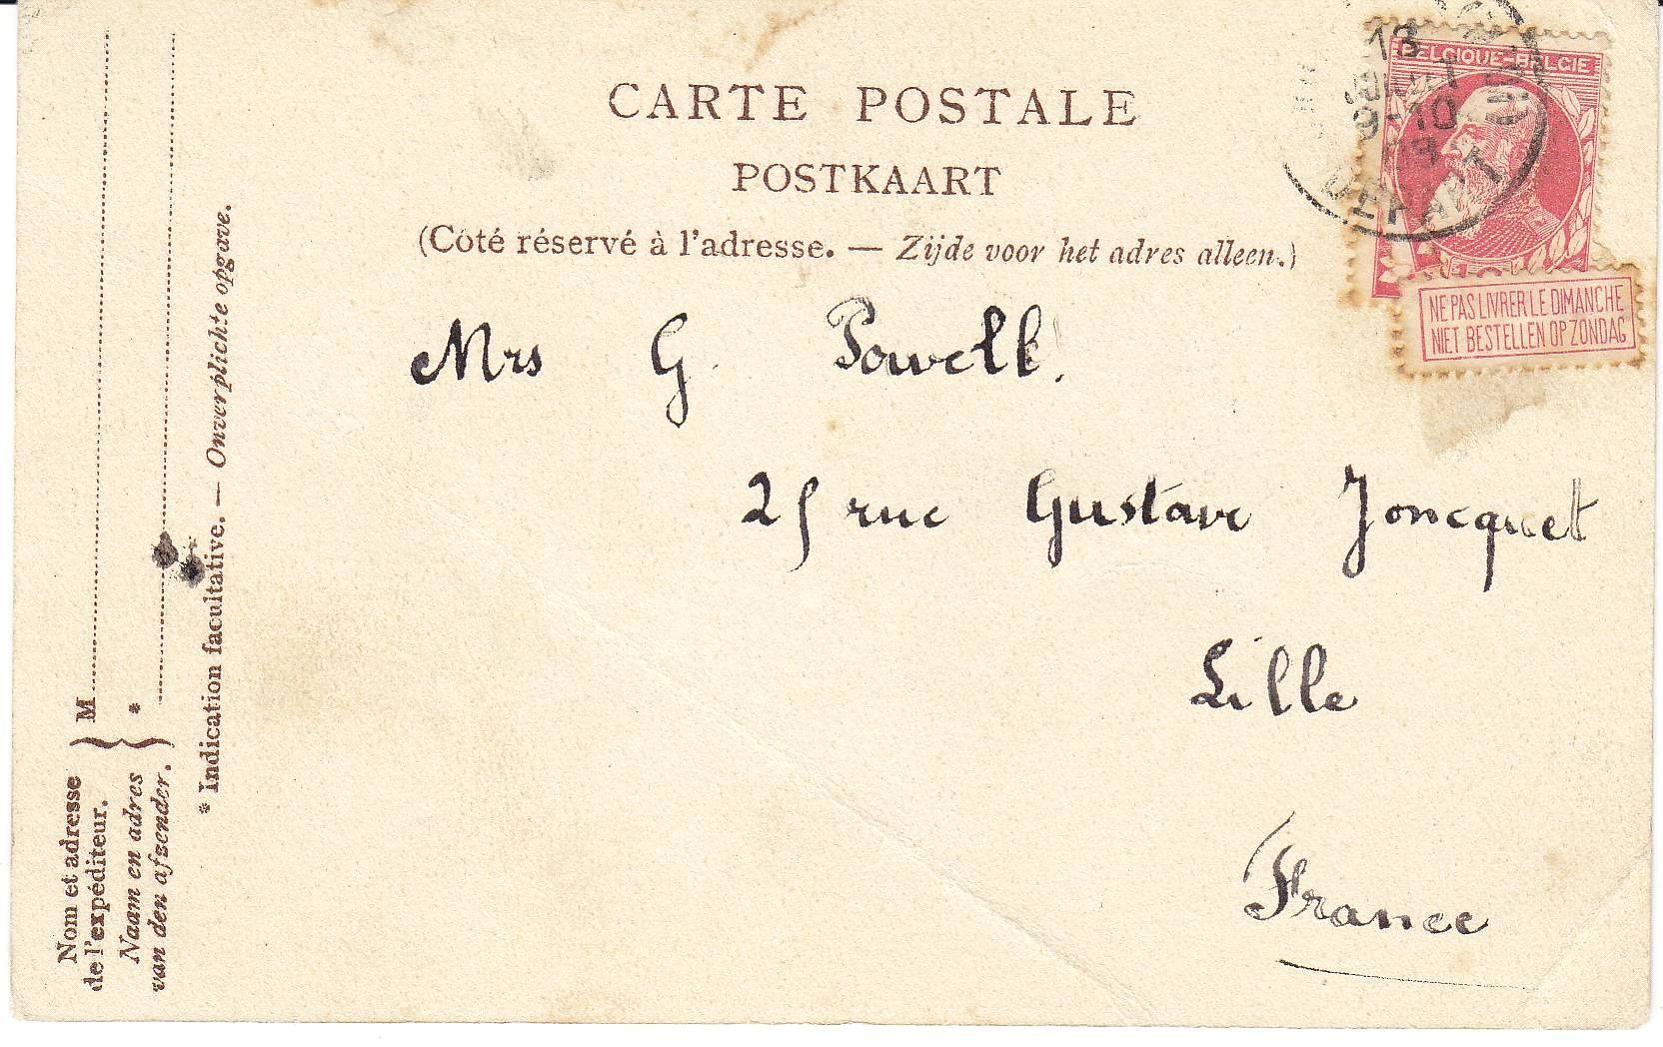 CARTE POSTALE
POSTKAART
(Côté réservé à l'adresse. — Zijde voor het adres alleen.)
Mrs G. Powell.
25 rue Gustave Joncquet
Lille
France
BELGIQUE-BELGIE
NE PAS LIVRER LE DIMANCHE
NIET BESTELLEN OP ZONDAG
13
9-10
09
DEPART
Nom et adresse
de l'expéditeur.
Naam en adres
van den afzender.
M
*
* Indication facultative. — Onverplichte opgave.